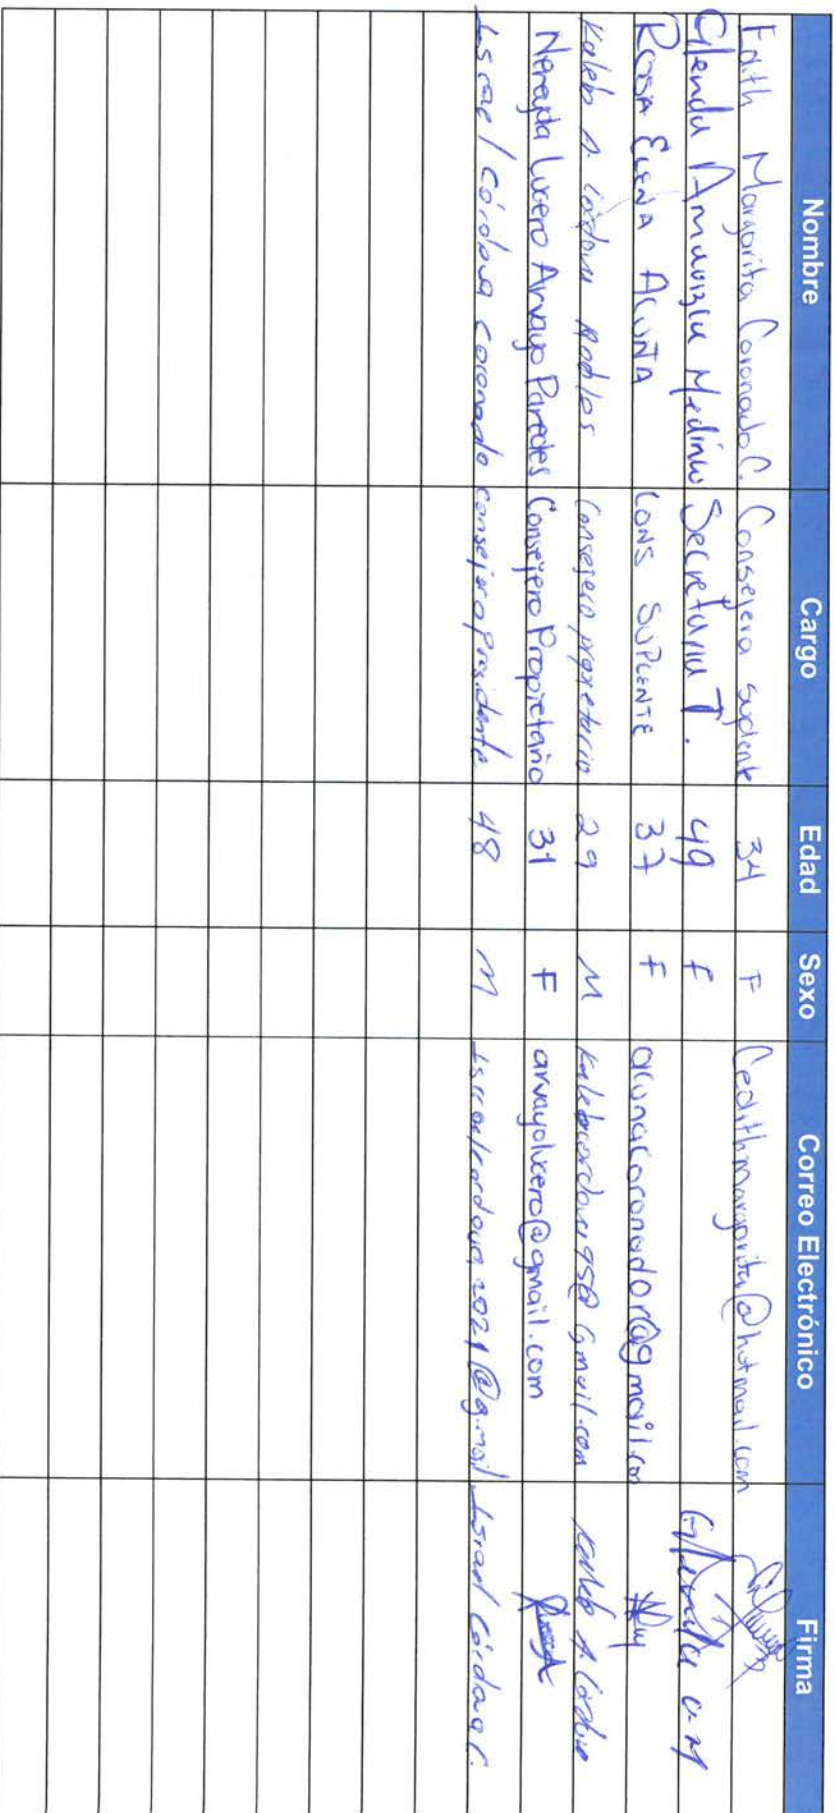 Nombre Cargo Edad Sexo Correo Electrónico Firma
Edith Margarita Coronado C. Consejera suplente 34 F Cedithmargarita@hotmail.com
Glenda Amavizca Medina Secretaria T. 49 F Glenda A M
ROSA ELENA ACUÑA CONS SUPLENTE 37 F acunacoronador@gmail.com
Kaleb A. Córdova Robles Consejero propietario 29 M Kalebcordova95@gmail.com Kaleb A. Córdova
Nereyda Lucero Arvayo Paredes Consejero Propietario 31 F arvayolucero@gmail.com
Israel Córdova Coronado Consejero Presidente 48 M israelcordova2021@gmail Israel Córdova C.